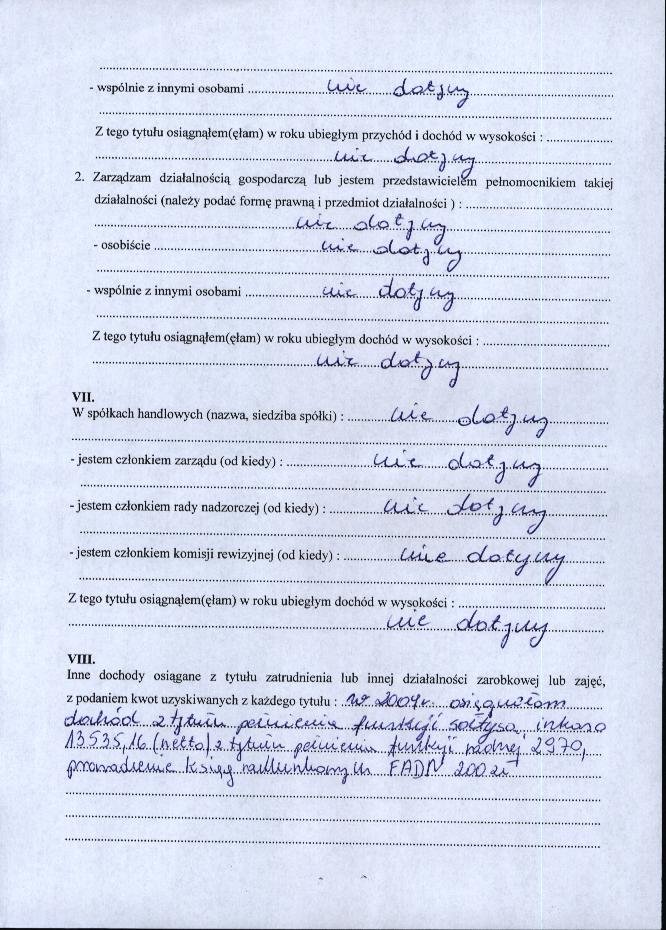 - wspólnie z innymi osobami nie dotyczy
Z tego tytułu osiągnąłem(ęłam) w roku ubiegłym przychód i dochód w wysokości :
nie dotyczy
2. Zarządzam działalnością gospodarczą lub jestem przedstawicielem pełnomocnikiem takiej
działalności (należy podać formę prawną i przedmiot działalności ) :
nie dotyczy
- osobiście nie dotyczy
- wspólnie z innymi osobami nie dotyczy
Z tego tytułu osiągnąłem(ęłam) w roku ubiegłym dochód w wysokości :
nie dotyczy
VII.
W spółkach handlowych (nazwa, siedziba spółki) : nie dotyczy
- jestem członkiem zarządu (od kiedy) : nie dotyczy
- jestem członkiem rady nadzorczej (od kiedy) : nie dotyczy
- jestem członkiem komisji rewizyjnej (od kiedy) : nie dotyczy
Z tego tytułu osiągnąłem(ęłam) w roku ubiegłym dochód w wysokości :
nie dotyczy
VIII.
Inne dochody osiągane z tytułu zatrudnienia lub innej działalności zarobkowej lub zajęć,
z podaniem kwot uzyskiwanych z każdego tytułu : w 2009r. osiągnęłam
dochód z tytułu pełnienia funkcji sołtysa, inkaso
13535,16 (netto) z tytułu pełnienia funkcji radnej 2970,
prowadzenie ksiąg rachunkowych FADN 200 zł